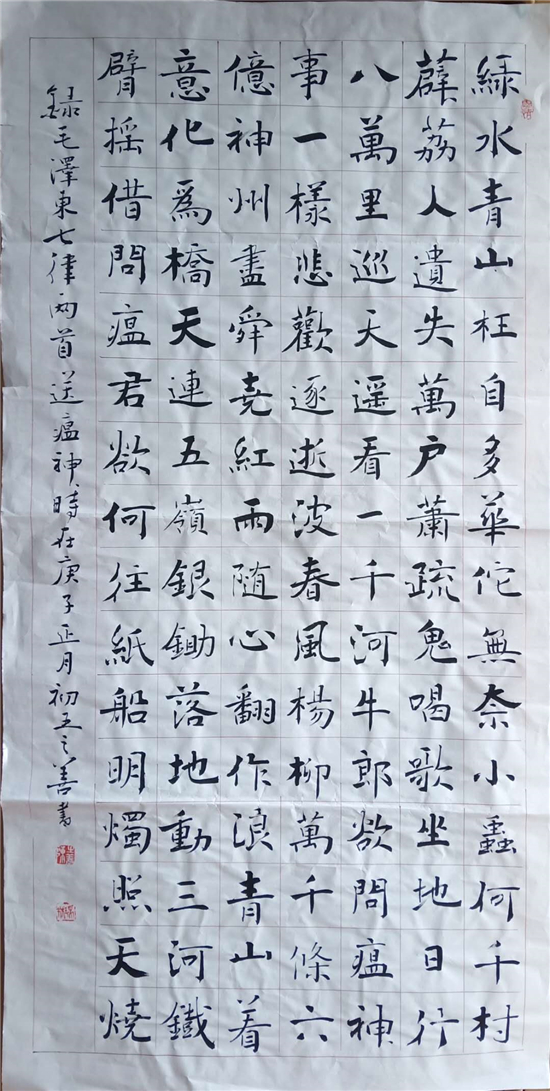 綠水青山枉自多華佗無奈小蟲何千村
薜荔人遺失萬户蕭疏鬼喝歌坐地日行
八萬里巡天遥看一千河牛郎欲問瘟神
事一樣悲歡逐逝波春風楊柳萬千條六
億神州盡舜堯紅雨随心翻作浪青山着
意化爲橋天連五嶺銀鋤落地動三河鐵
臂摇借問瘟君欲何往紙船明燭照天燒
録毛澤東七律两首送瘟神時在庚子正月初五之善書